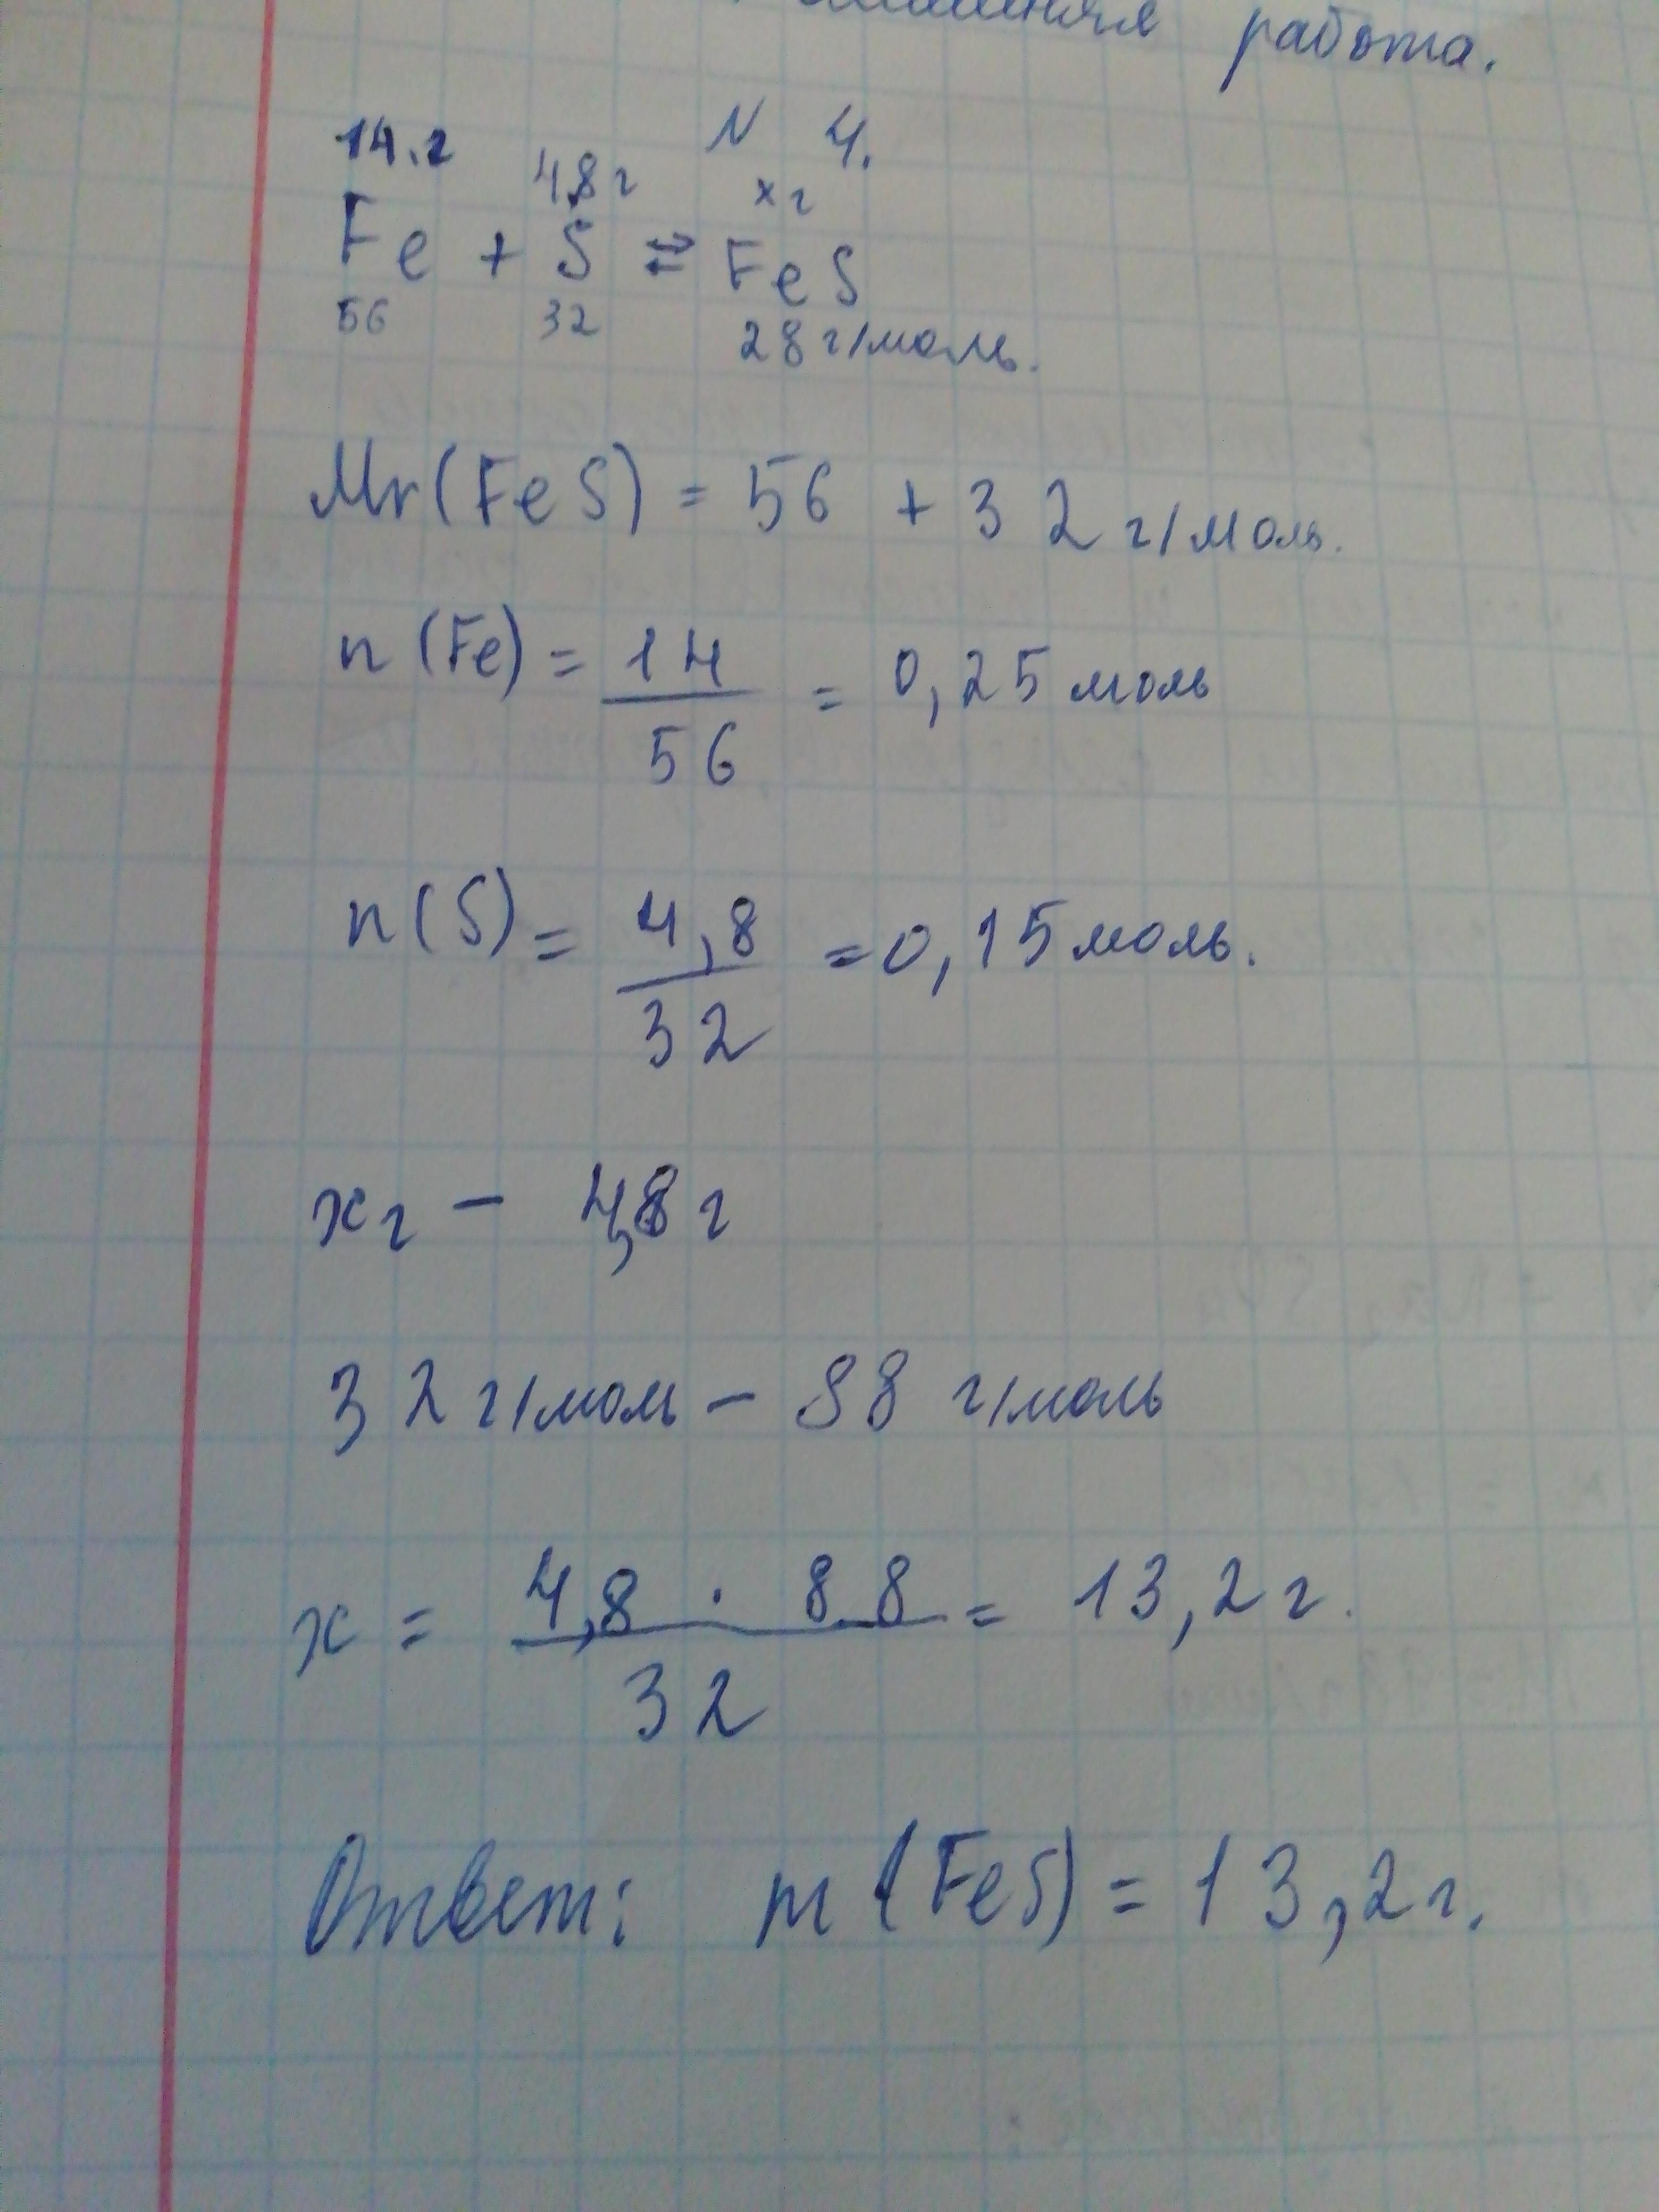 работа.
N 4.
14.г 4,8г хг
Fe + S ⇄ FeS
56 32 28 г/моль.
Mr(FeS) = 56 + 32 г/моль.
n (Fe) = 14/56 = 0,25 моль
n(S) = 4,8/32 = 0,15 моль.
хг - 4,8 г
32 г/моль - 88 г/моль
x = 4,8 · 88/32 = 13,2 г.
Ответ: m (FeS) = 13,2г.